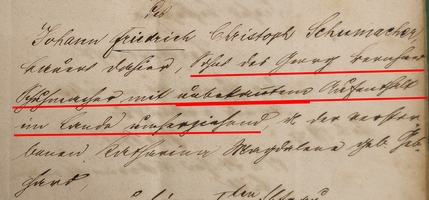 Johann Friedrich Christoph Schumacher,
Bauers dahier, Sohns des Georg Bernhard
Schumacher mit unbekanntem Aufenthalt
im Lande umherziehend, & der verstor-
benen Katharina Magdalena geb. Geb-
hard,